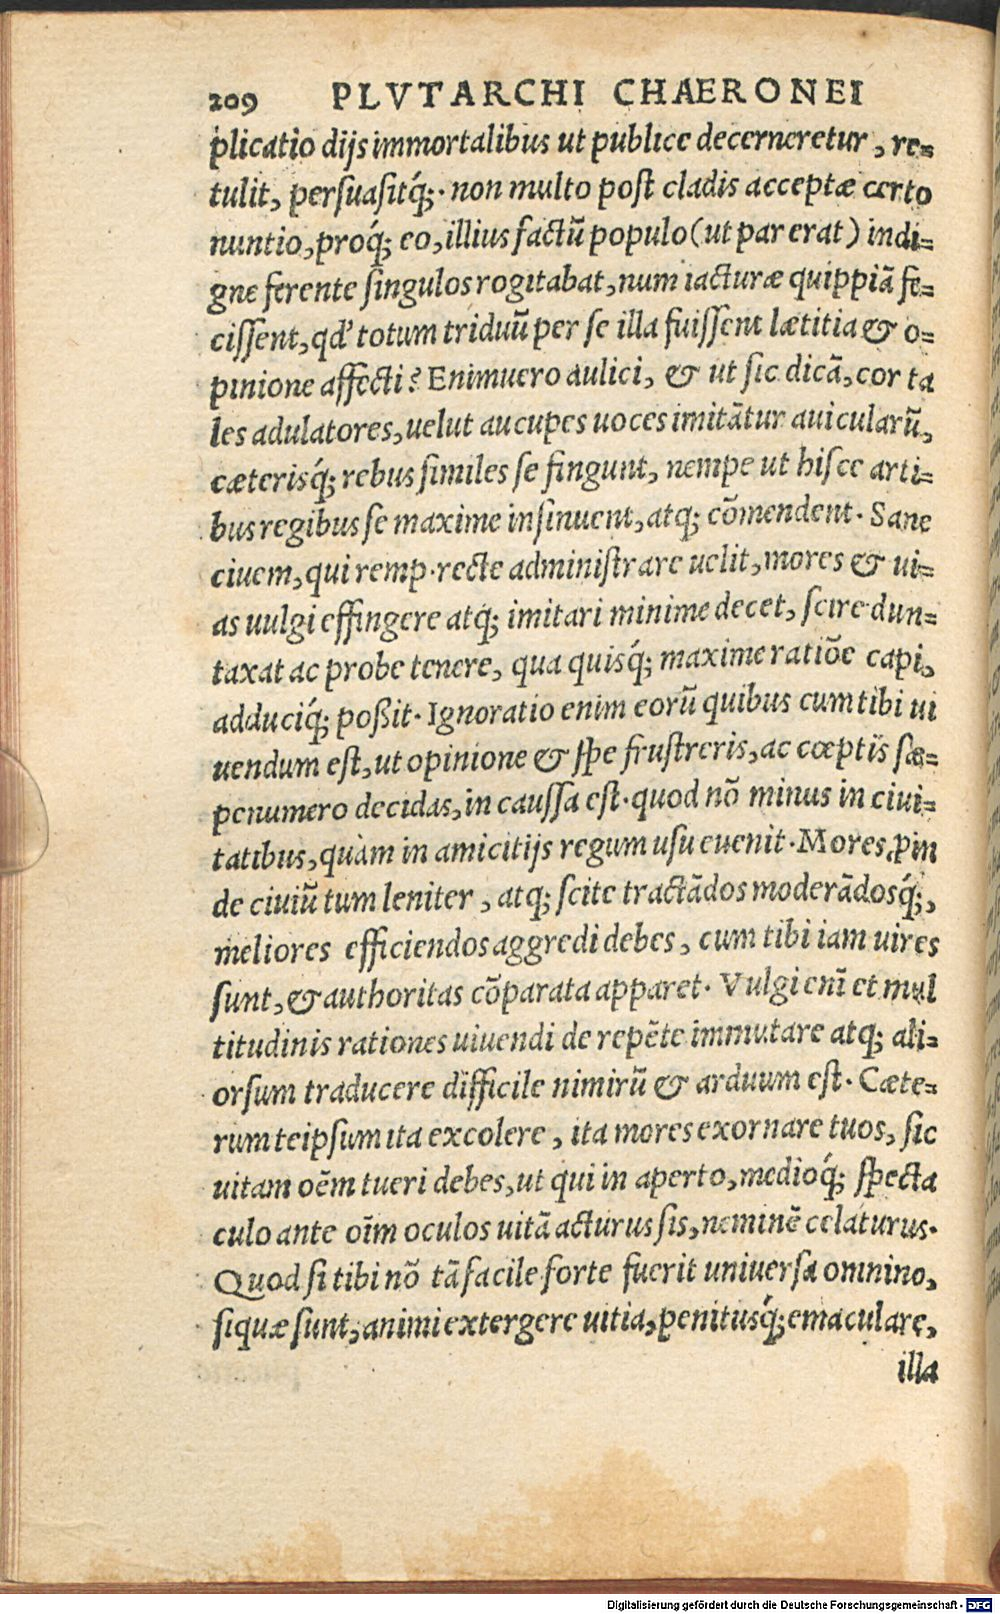 209 PLVTARCHI CHAERONEI
plicatio dijs immortalibus ut publice decerneretur, re=
tulit, persuasitq́;. non multo post cladis acceptæ certo
nuntio, proq́; eo, illius factū populo (ut par erat) indi=
gne ferente singulos rogitabat, num iacturæ quippiā fe=
cissent, qď totum triduū per se illa fuissent lætitia & o=
pinione affecti? Enimuero aulici, & ut sic dicā, cor ta
les adulatores, uelut aucupes uoces imitātur auicularū,
cæterisq́; rebus similes se fingunt, nempe ut hisce arti=
bus regibus se maxime insinuent, atq; cōmendent. Sane
ciuem, qui remp. recte administrare uelit, mores & ui=
as uulgi effingere atq́; imitari minime decet, scire dun=
taxat ac probe tenere, qua quisq́; maxime ratiōe capi,
adduciq́; poßit. Ignoratio enim eorū quibus cum tibi ui
uendum est, ut opinione & spe frustreris, ac cœptis sæ=
penumero decidas, in caussa est. quod nō minus in ciui=
tatibus, quàm in amicitijs regum usu euenit. Mores ꝓin
de ciuiū tum leniter, atq; scite tractādos moderādosq́;,
meliores efficiendos aggredi debes, cum tibi iam uires
sunt, & authoritas cōparata apparet. Vulgi enī et mul
titudinis rationes uiuendi de repēte immutare atq; ali=
orsum traducere difficile nimirū & arduum est. Cæte=
rum teipsum ita excolere, ita mores exornare tuos, sic
uitam oēm tueri debes, ut qui in aperto, medioq́; specta
culo ante oīm oculos uitā acturus sis, neminē celaturus.
Quod si tibi nō tā facile forte fuerit uniuersa omnino,
siquæ sunt, animi extergere uitia, penitusq́; emaculare,
illa
Digitalisierung gefördert durch die Deutsche Forschungsgemeinschaft - DFG